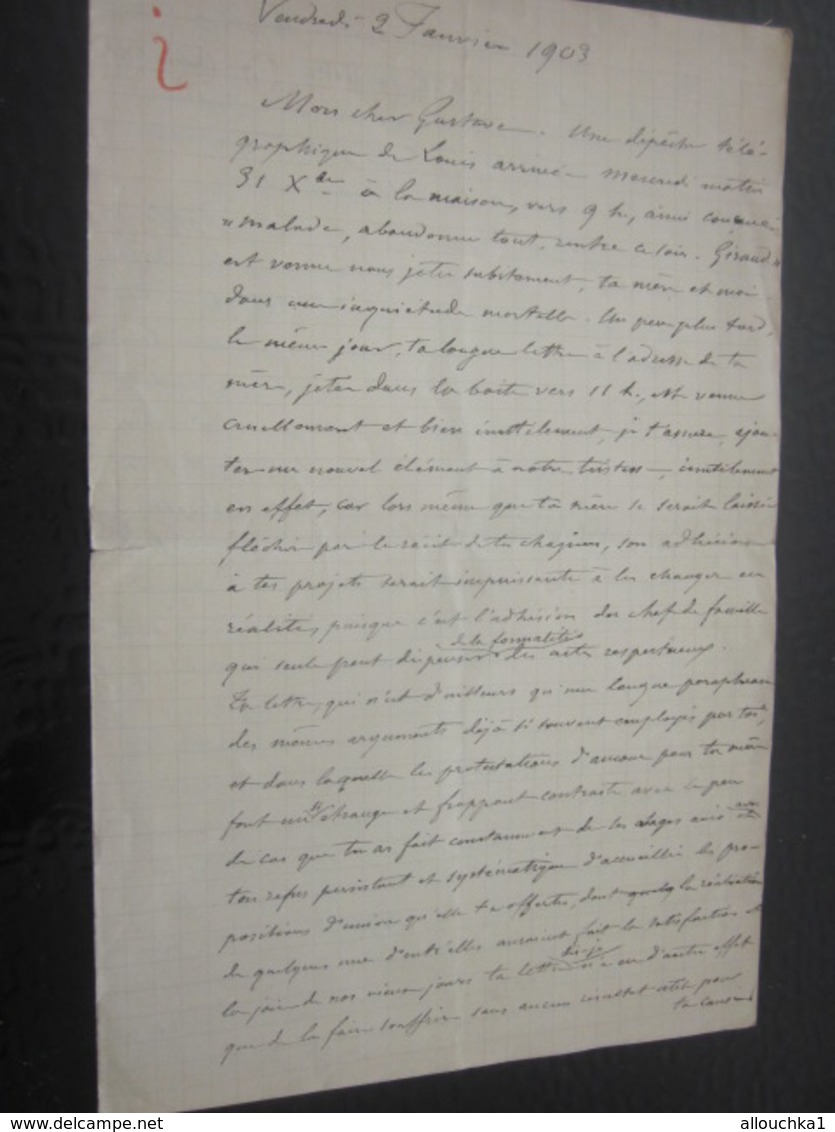 Vendredi 2 Janvier 1903
Mon cher Gustave. Une dépêche télé-
graphique de Louis arrivée mercredi matin
31 Xbre à la maison, vers 9 h, ainsi conçue :
"malade, abandonne tout, rentre ce soir. Giraud"
est venue nous jeter subitement, ta mère et moi
dans une inquiétude mortelle. Un peu plus tard,
le même jour, ta longue lettre à l'adresse de ta
mère, jetée dans la boîte vers 11 h., est venue
cruellement et bien inutilement, je t'assure, ajou-
ter un nouvel élément à notre tristesse, inutilement
en effet, car lors même que ta mère se serait laissée
fléchir par le récit de tes chagrins, son adhésion
à tes projets serait impuissante à les changer en
réalités, puisque c'est l'adhésion du chef de famille
qui seule peut dispenser de la formalité des actes respectueux.
Ta lettre, qui n'est d'ailleurs qu'une longue paraphrase
des mêmes arguments déjà si souvent employés par toi,
et dans laquelle les protestations d'amour pour ta mère
font un si étrange et frappant contraste avec le peu
de cas que tu as fait constamment de ses sages avis et
ton refus persistant et systématique d'accueillir les pro-
positions d'union qu'elle t'a offertes, dont la réalisation
de quelques unes d'entr'elles auraient fait la satisfaction et
la joie de nos vieux jours ta lettre dis-je n'a eu d'autre effet
que de la faire souffrir sans aucun résultat utile pour
ta cause
PicClick
Seller: allouchka1